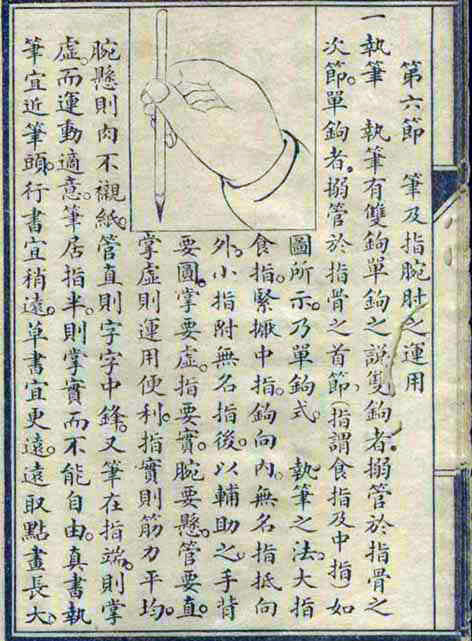 第六節　筆及指腕肘之運用
一執筆　執筆有雙鉤單鉤之說。雙鉤者。搦管於指骨之
次節。單鉤者。搦管於指骨之首節、（指謂食指及中指如
圖所示。乃單鉤式。　執筆之法。大指
食指。緊擫中指。鉤向內。無名指抵向
外。小指附無名指後。以輔助之。手背
要圓。掌要虛。指要實。腕要懸。管要直。
掌虛則運用便利。指實則筋力平均。
腕懸則肉不襯紙。管直則字字中鋒。又筆在指端。則掌
虛。而運動適意。筆居指半。則掌實而不能自由。真書執
筆宜近筆頭。行書宜稍遠。草書宜更遠。遠取點畫長大、